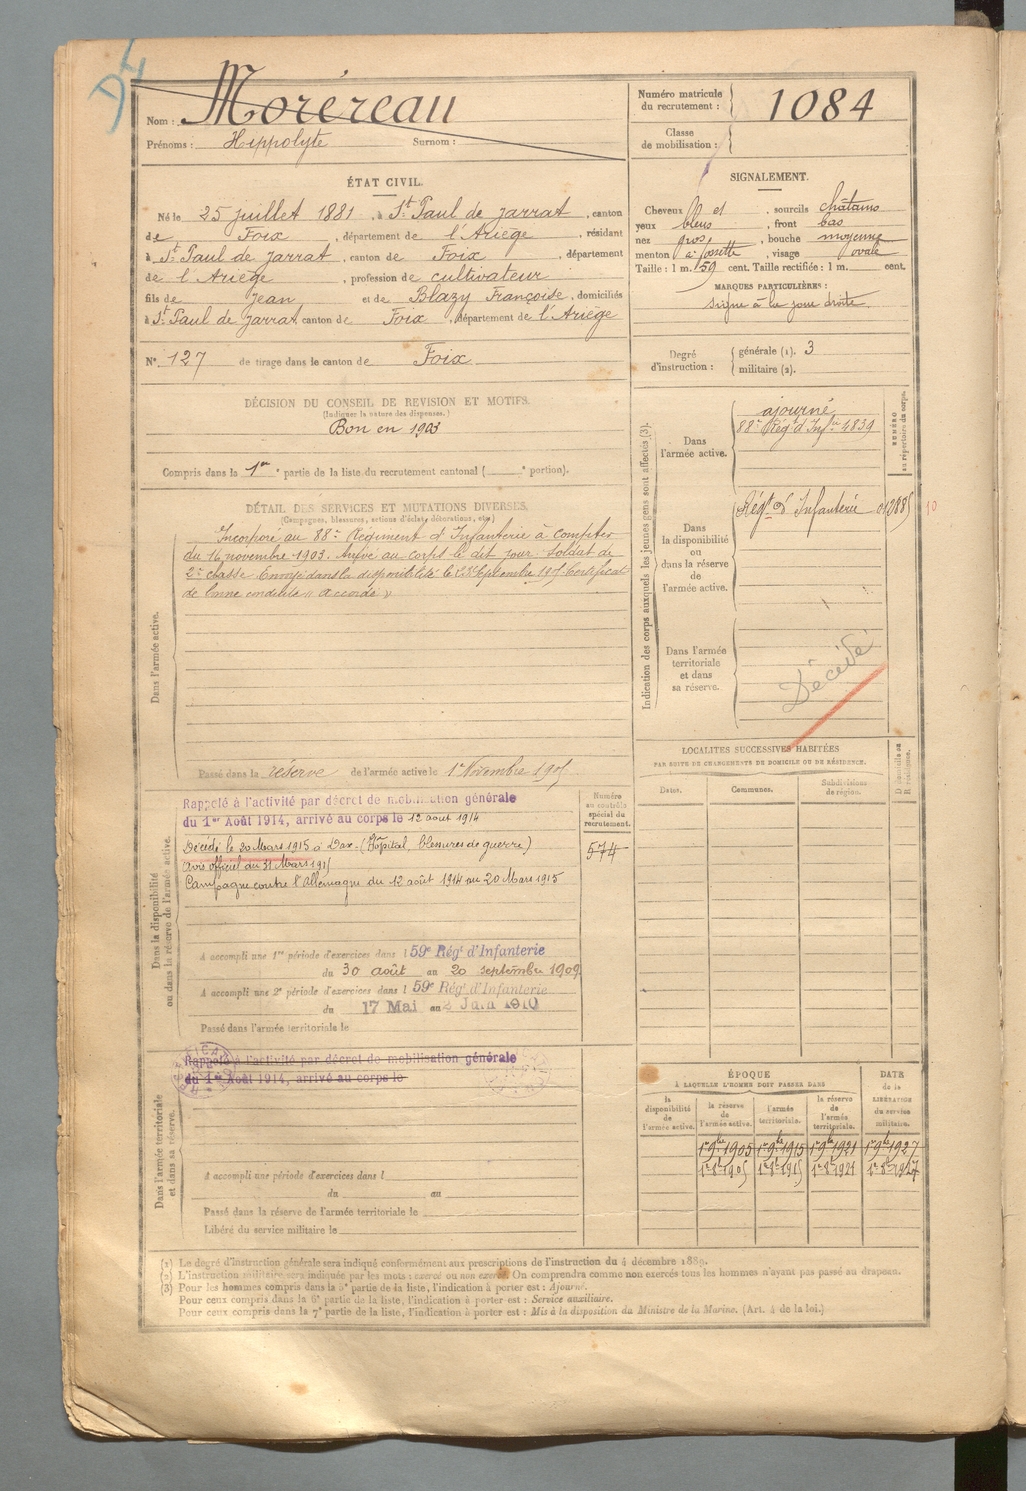 D4
Nom : Moréreau
Prénoms : Hippolyte Surnom :
Numéro matricule du recrutement : 1084
Classe de mobilisation :
ÉTAT CIVIL.
Né le 25 juillet 1881, à St Paul de Jarrat, canton
de Foix, département de l'Ariège, résidant
à St Paul de Jarrat, canton de Foix, département
de l'Ariège, profession de cultivateur
fils de Jean et de Blazy Françoise, domiciliés
à St Paul de Jarrat, canton de Foix, département de l'Ariège
N° 127 de tirage dans le canton de Foix
SIGNALEMENT.
Cheveux et sourcils châtains
yeux bleus, front bas
nez gros, bouche moyenne
menton à fossette, visage ovale
Taille : 1 m. 59 cent. Taille rectifiée : 1 m. cent.
MARQUES PARTICULIÈRES :
signe à la joue droite
Degré d'instruction : générale (1). 3
militaire (2).
DÉCISION DU CONSEIL DE REVISION ET MOTIFS.
(Indiquer la nature des dispenses.)
Bon en 1903
Compris dans la 1re partie de la liste du recrutement cantonal ( e portion).
DÉTAIL DES SERVICES ET MUTATIONS DIVERSES.
(Campagnes, blessures, actions d'éclat, décorations, etc.)
Dans l'armée active.
Incorporé au 88e Régiment d'Infanterie à compter
du 16 novembre 1903. Arrivé au corps le dit jour. Soldat de
2e classe. Envoyé dans la disponibilité le 23 Septembre 1905. Certificat
de bonne conduite « accordé »
Passé dans la réserve de l'armée active le 1er Novembre 1905
Indication des corps auxquels les jeunes gens sont affectés (3).
NUMÉRO au répertoire du corps.
Dans l'armée active.
ajourné
88e Régt d'Infie 4839
Dans la disponibilité ou dans la réserve de l'armée active.
Régt d'Infanterie 012885
10
Dans l'armée territoriale et dans sa réserve.
Décédé
Dans la disponibilité ou dans la réserve de l'armée active.
Rappelé à l'activité par décret de mobilisation générale
du 1er Août 1914, arrivé au corps le 12 août 1914
Décédé le 20 Mars 1915 à Dax. (Hôpital, blessures de guerre)
Avis officiel du 31 Mars 1915
Campagne contre l'Allemagne du 12 août 1914 au 20 Mars 1915
Numéro au contrôle spécial du recrutement.
574
A accompli une 1re période d'exercices dans l 59e Régt d'Infanterie
du 30 août au 20 septembre 1909
A accompli une 2e période d'exercices dans l 59e Régt d'Infanterie
du 17 Mai au 2 Juin 1910
Passé dans l'armée territoriale le
LOCALITÉS SUCCESSIVES HABITÉES
PAR SUITE DE CHANGEMENTS DE DOMICILE OU DE RÉSIDENCE.
Dates. Communes. Subdivisions de région. D domicile ou R résidence.
Dans l'armée territoriale et dans sa réserve.
Rappelé à l'activité par décret de mobilisation générale
du 1er Août 1914, arrivé au corps le
A accompli une période d'exercices dans l
du au
Passé dans la réserve de l'armée territoriale le
Libéré du service militaire le
ÉPOQUE
À LAQUELLE L'HOMME DOIT PASSER DANS
la disponibilité de l'armée active. la réserve de l'armée active. l'armée territoriale. la réserve de l'armée territoriale.
DATE de la LIBÉRATION du service militaire.
1er 9bre 1905 1er 9bre 1915 1er 9bre 1921 1er 9bre 1927
1er 8bre 1905 1er 8bre 1915 1er 8bre 1921 1er 8bre 1927
(1) Le degré d'instruction générale sera indiqué conformément aux prescriptions de l'instruction du 4 décembre 1889.
(2) L'instruction militaire sera indiquée par les mots : exercé ou non exercé. On comprendra comme non exercés tous les hommes n'ayant pas passé au drapeau.
(3) Pour les hommes compris dans la 5e partie de la liste, l'indication à porter est : Ajourné.
Pour ceux compris dans la 6e partie de la liste, l'indication à porter est : Service auxiliaire.
Pour ceux compris dans la 7e partie de la liste, l'indication à porter est : Mis à la disposition du Ministre de la Marine. (Art. 4 de la loi.)